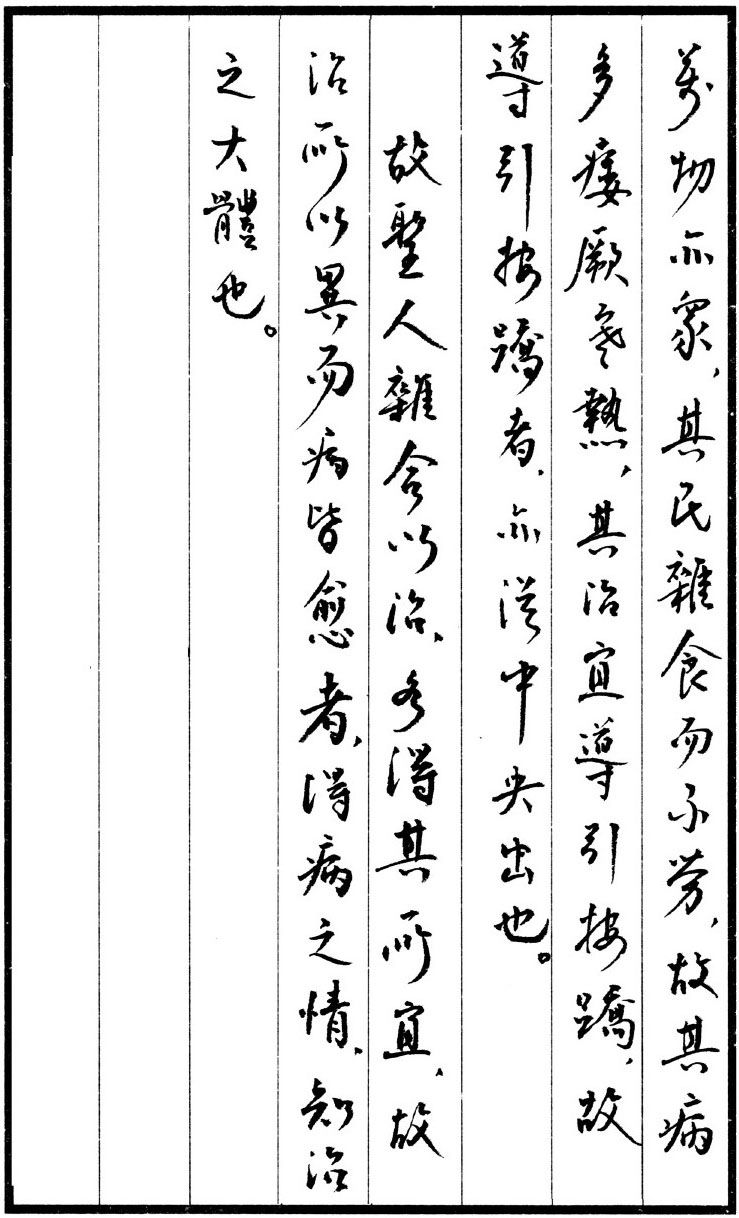 萬物亦衆，其民雜食而不勞，故其病
多痿厥寒熱，其治宜導引按蹻，故
導引按蹻者，亦從中央出也。
故聖人雜合以治，各得其所宜，故
治所以異而病皆愈者，得病之情，知治
之大體也。